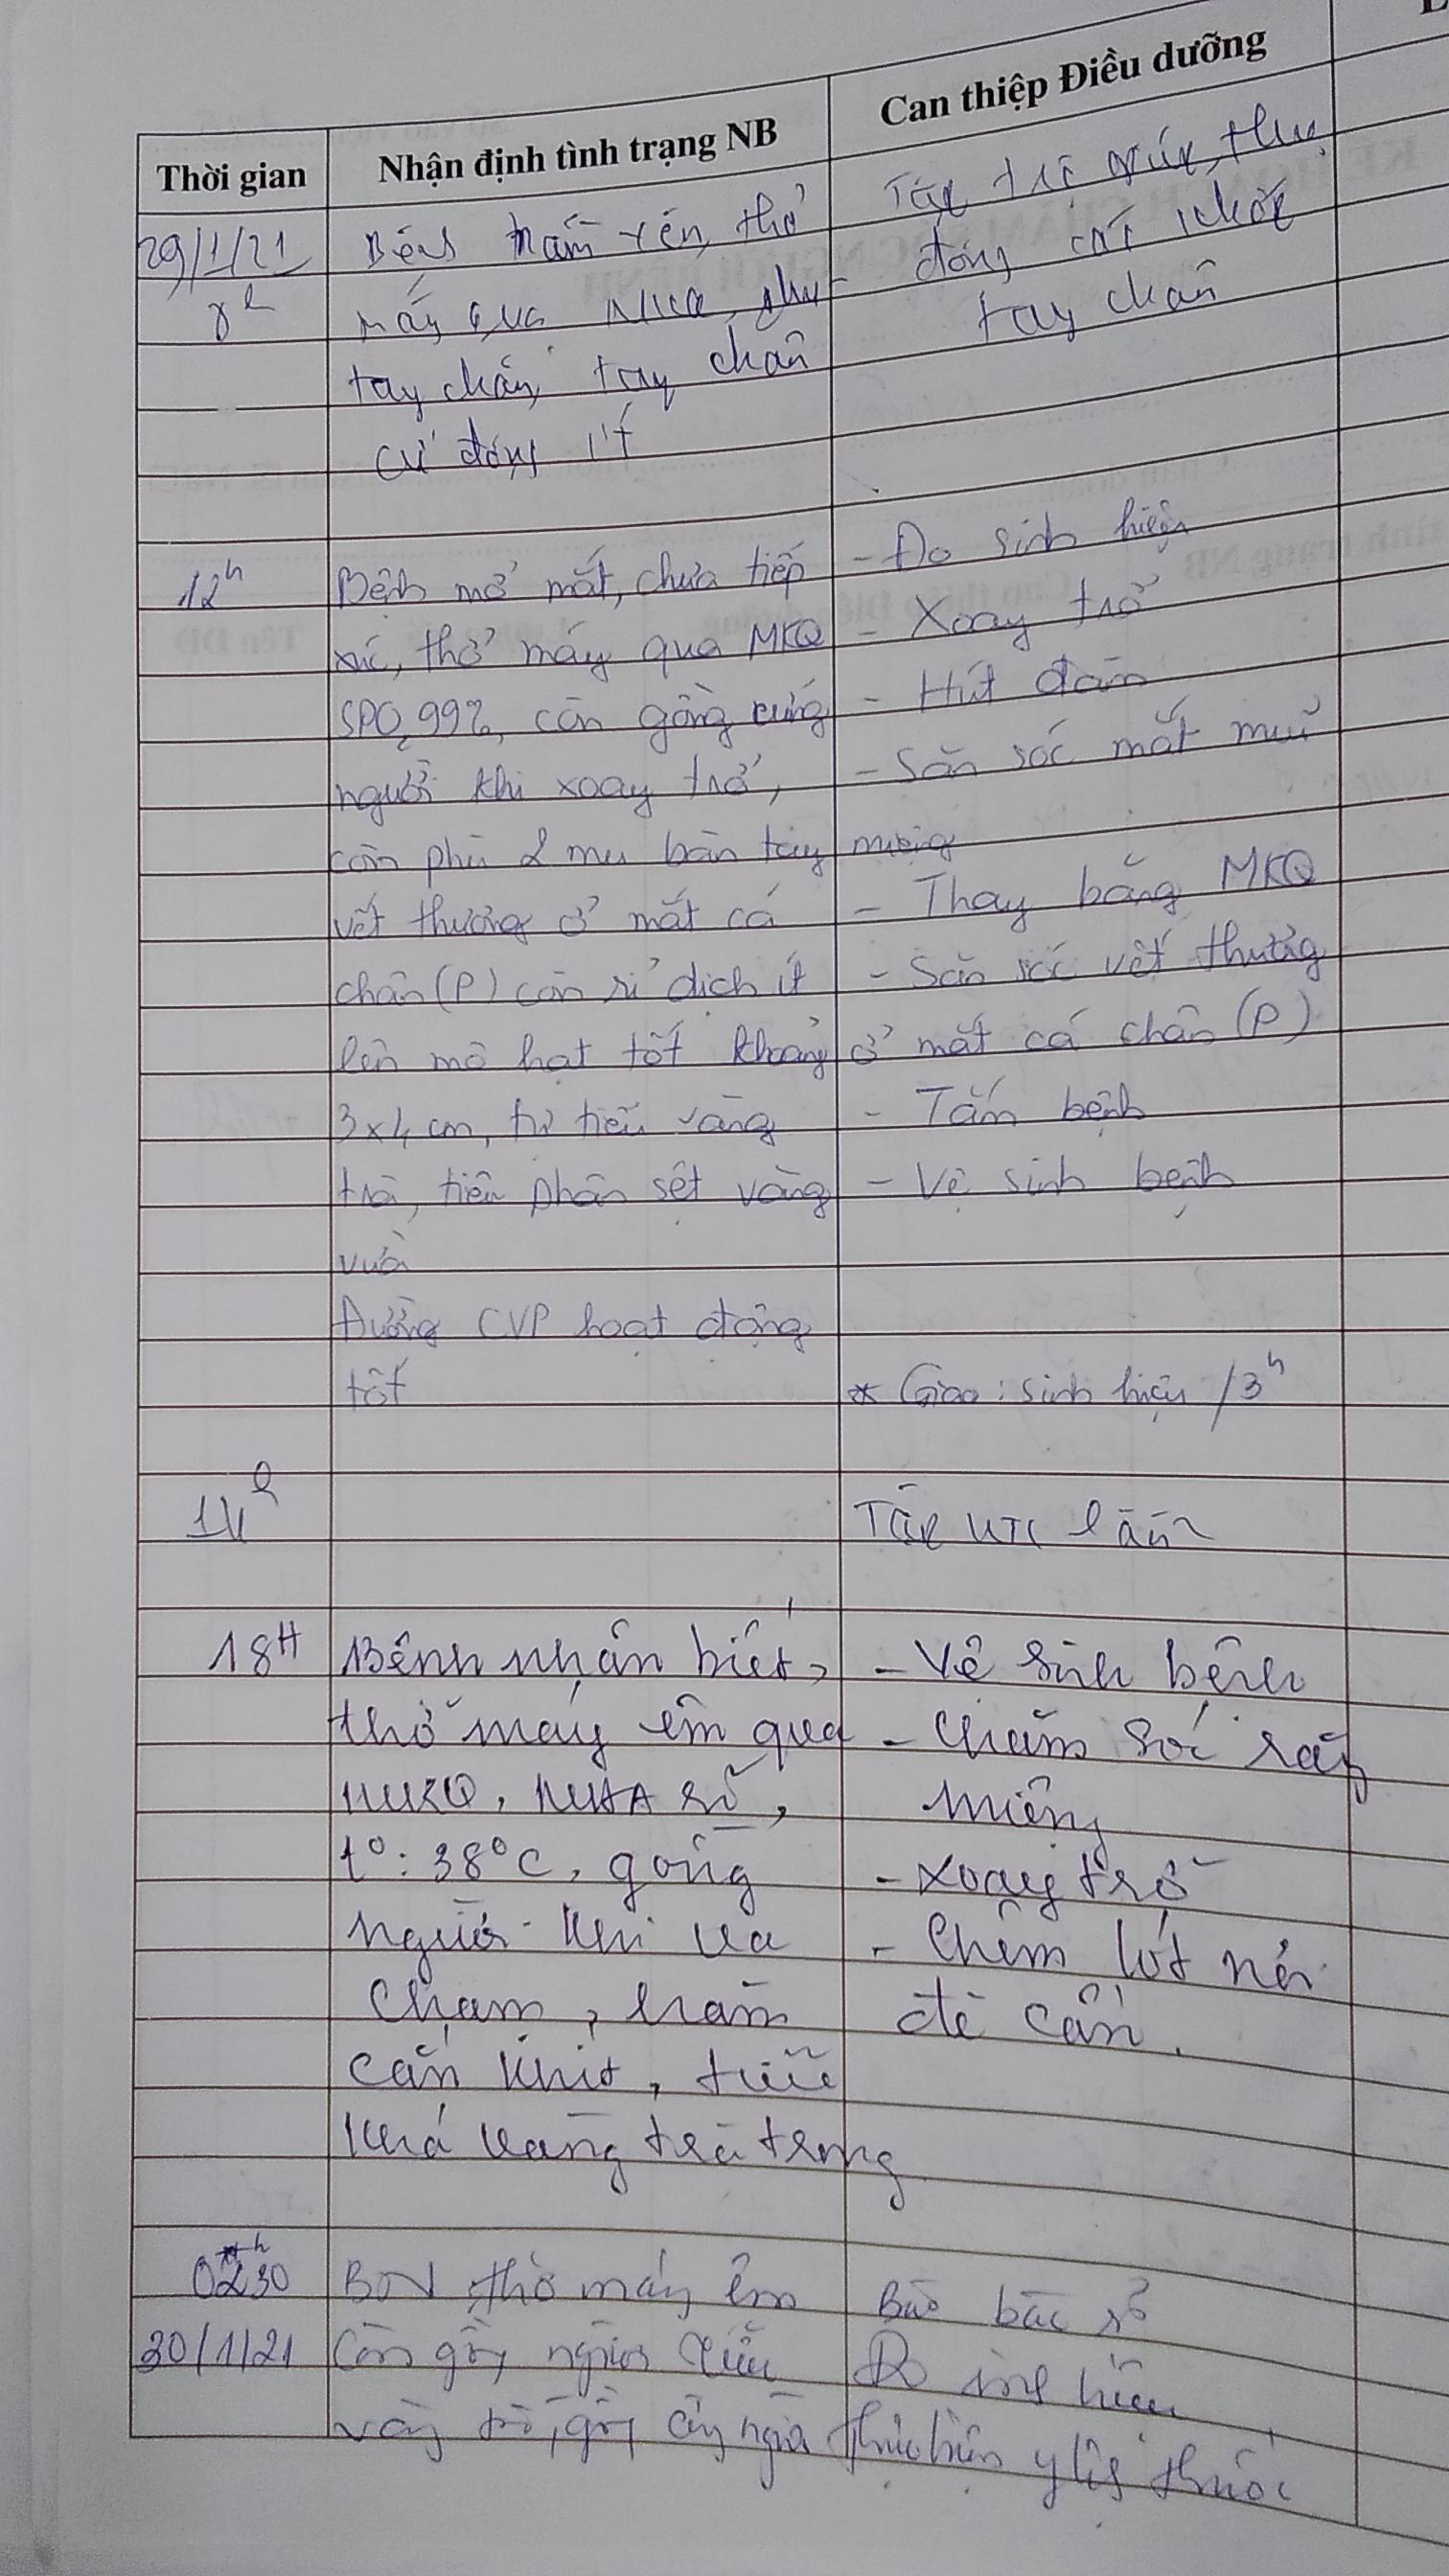 Thời gian
Nhận định tình trạng NB
Can thiệp Điều dưỡng
29/1/21
8h
Bệnh nằm yên, thở
máy qua
tay chân, tay chân
cử động ít
thụ
động các khớp
tay chân
12h
Bệnh mở mắt, chưa tiếp
xúc, thở máy qua MKQ
SPO2 99%, còn gồng cứng
người khi xoay trở,
còn phù 2 mu bàn tay
vết thương ở mắt cá
chân (P) còn rỉ dịch ít
lên mô hạt tốt khoảng
3x4 cm, tự tiểu vàng
trà, tiêu phân sệt vàng
vừa
Đường CVP hoạt động
tốt
- Đo sinh hiệu
- Xoay trở
- Hút đàm
- Săn sóc mắt mũi
miệng
- Thay băng MKQ
- Săn sóc vết thương
ở mắt cá chân (P)
- Tắm bệnh
- Vệ sinh bệnh
* Giao: sinh hiệu /3h
14h
Tập VTL lần 2
18H
Bệnh nhận biết,
thở máy êm qua
MKQ, rõ,
t°: 38°C, gồng
người khi va
chạm, hàm
cắn khít, tiểu
khá vàng trà trong
- Vệ sinh bệnh
- Chăm sóc răng
miệng
- Xoay trở
- Chêm lót nơi
đè cấn.
02h30
30/1/21
BN thở máy êm
Còn gồng người tiểu
vàng trà, gồng cứng người
Báo bác sĩ
Đo sinh hiệu
Thực hiện y lệnh thuốc